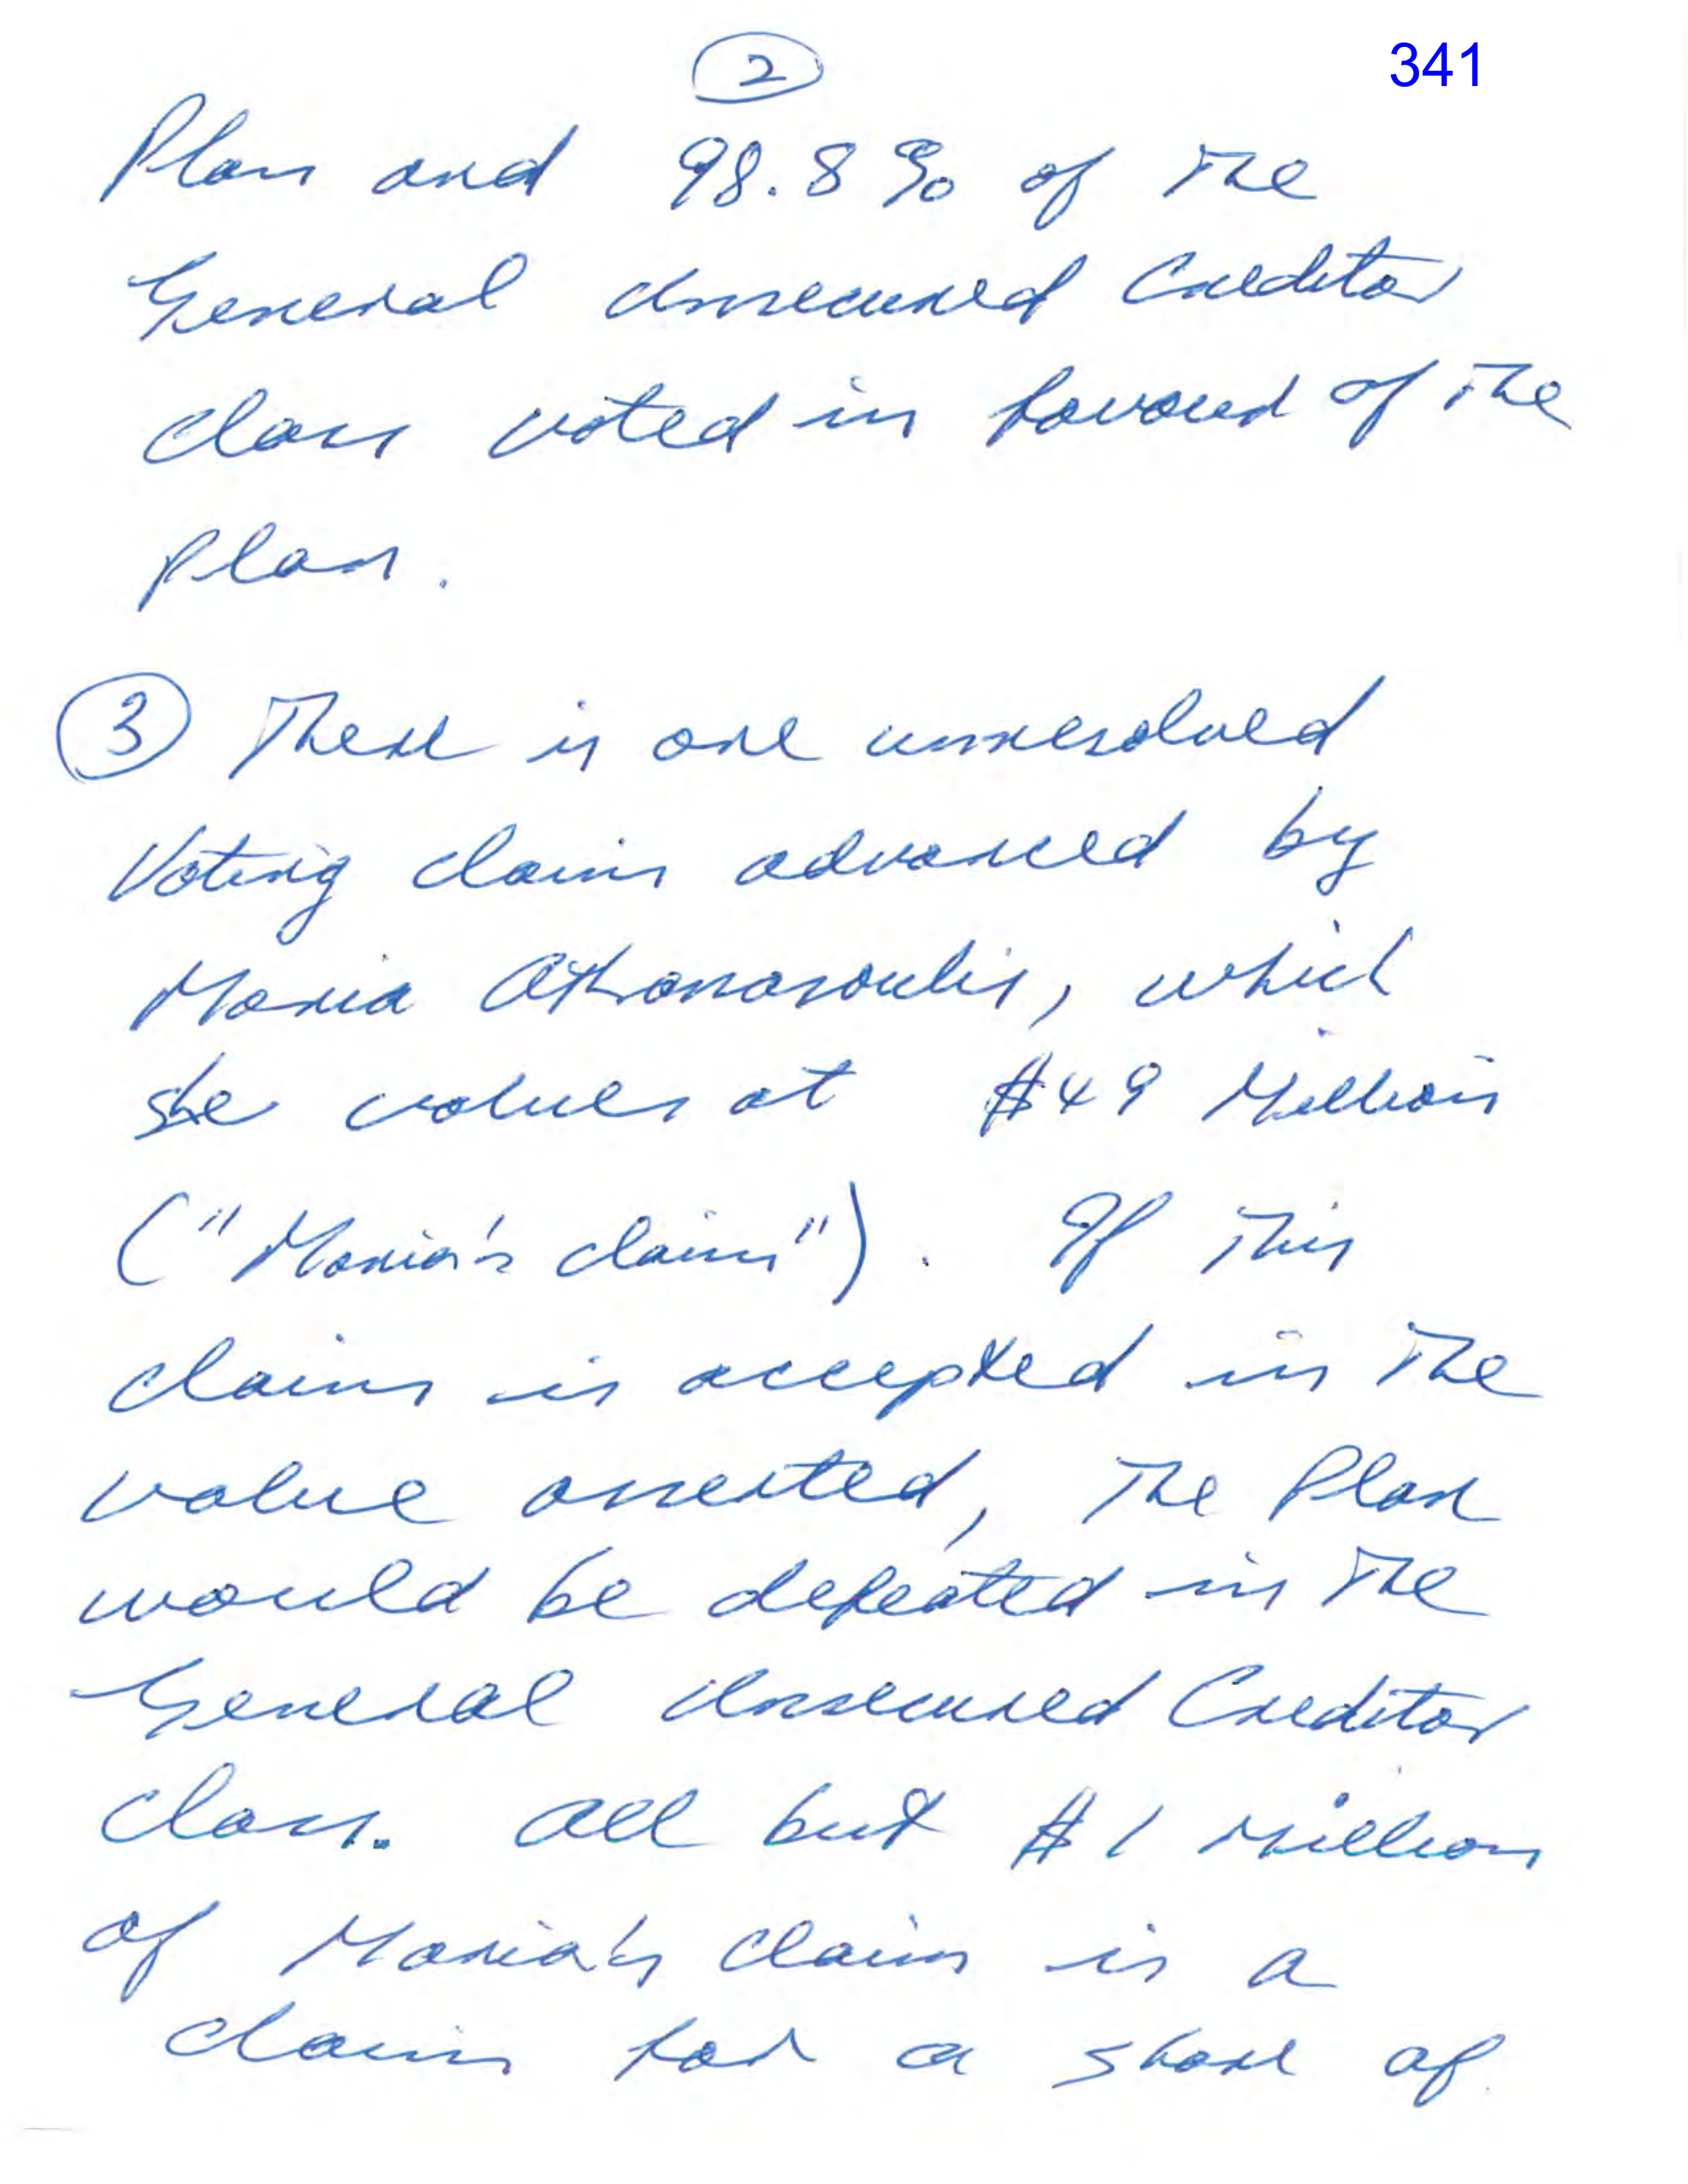 2
341
Plan and 98.8% of the
General Unsecured Creditor
class voted in favour of the
plan.
3 There is one unresolved
Voting claim advanced by
Maria Athanasoulis, which
she values at $49 Million
("Maria's claim"). If this
claim is accepted in the
value asserted, the Plan
would be defeated in the
General Unsecured Creditor
class. All but $1 Million
of Maria's claim is a
claim for a share of